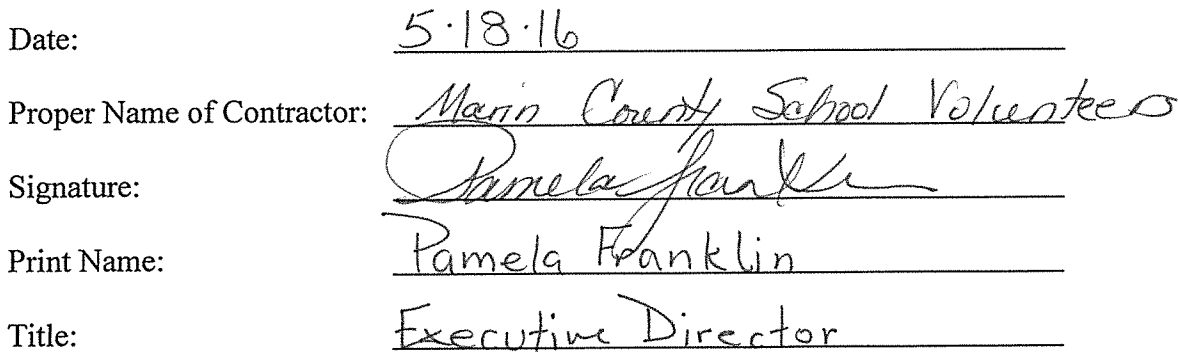 Date: 5·18·16
Proper Name of Contractor: Marin County School Volunteers
Signature: Pamela Franklin
Print Name: Pamela Franklin
Title: Executive Director